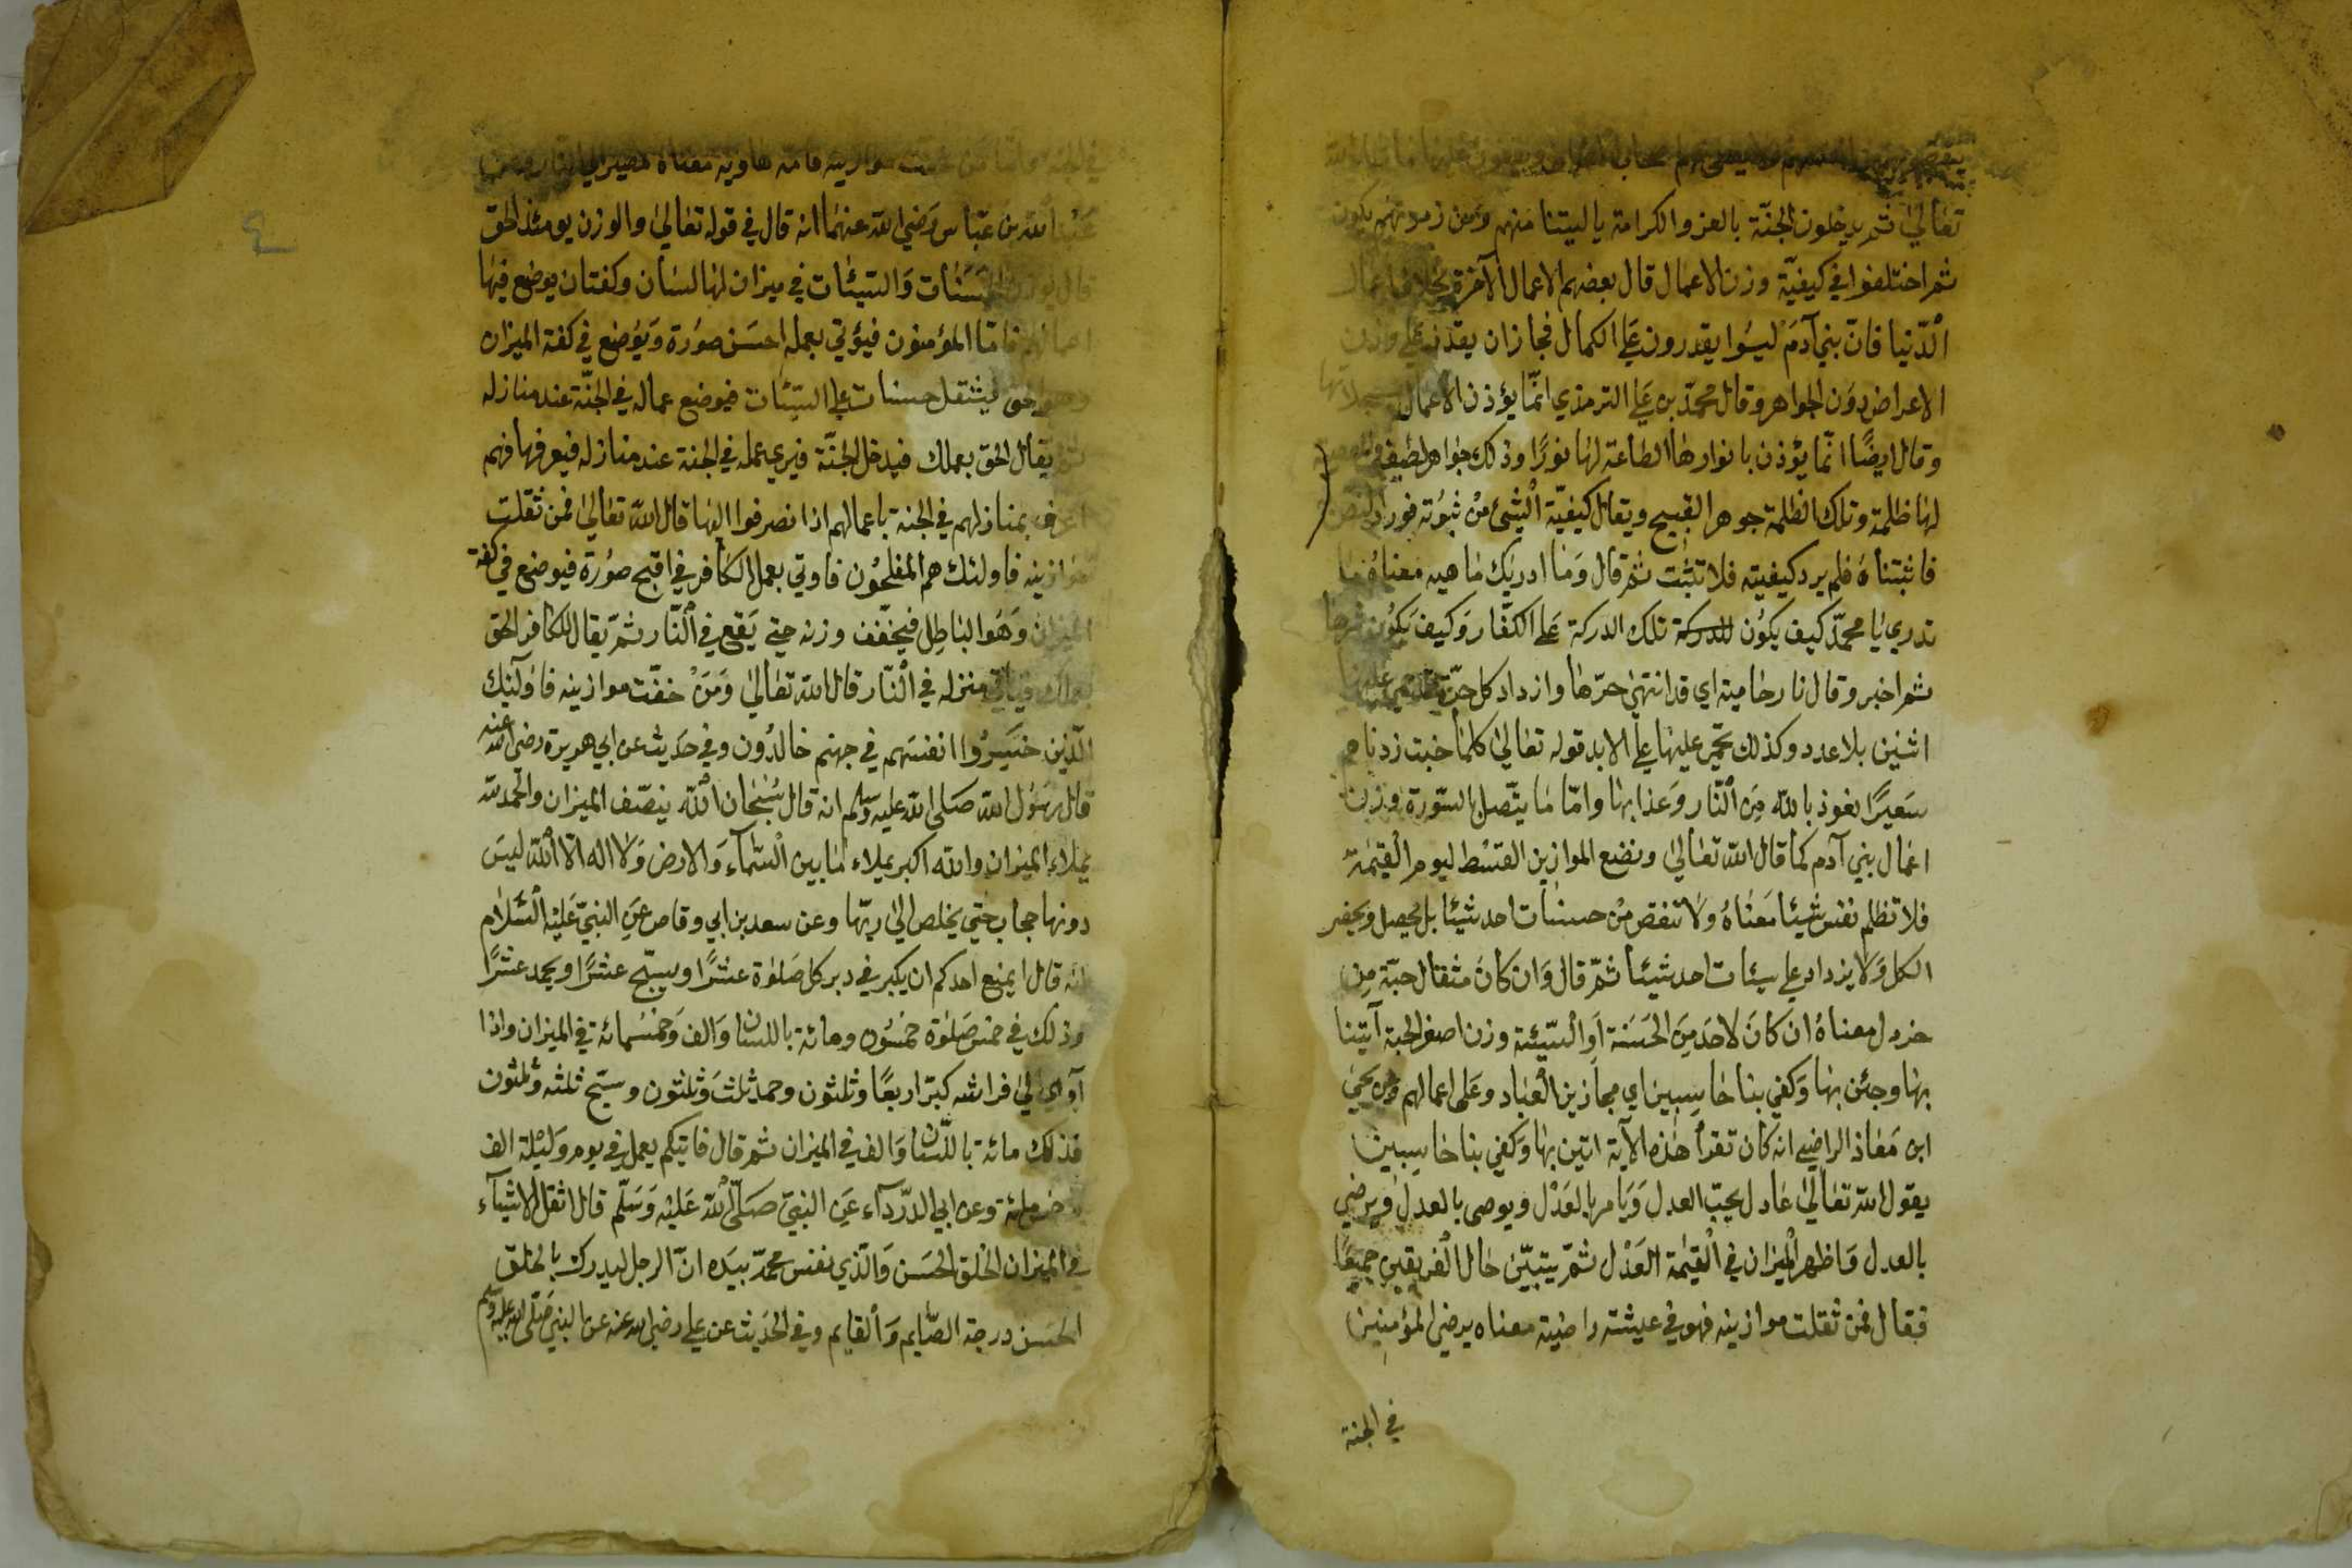 تعالى ثم يدخلون الجنّة بالعز والكرامة يا ليتنا منهم ومن زمرتهم يكون
ثم اختلفوا في كيفيّة وزن الاعمال قال بعضهم الاعمال الآخرة بخلاف اعمال
الدّنيا فانّ بني آدمَ ليسُوا يقدرون عَلي الكمال فجازان يقدر علي وزن
الاعراض دوَن الجواهر وقال محمّد بن عَلي الترمذي انّما يؤذن الاعمال
وقال ايضًا انّما يؤذن بانوارها الطاعة لها نورًا وذلك جواهر لطيف
لها ظلمة وتلك الظلمة جوهر القبيح ويقال كيفيّة الشيء منْ ثبوُته فورد النّص
فاثبتناهُ فلم يرد كيفيته فلا تثبت ثم قال وَما ادريك ما هيه معناهُ ما
تدري يا محمدّ كيف يكوُن للدركة تلك الدركة عَلي الكفّار وَكيف يَكوُن
ثم اخبر وقال نار حامية اي قد انتهيٰ حرّها وازداد كل
اثنين بلا عدد وكذلك تحمي عليها علي الابد قوله تعالىٰ كلما خبت زدناهم
سَعيرًا نعوذ بالله مِنَ النّار وَعذابها وامّا ما يتّصل بالسّورة وزن
اعمال بني آدم كما قال الله تعالىٰ ونضع الموازين القسْط ليوم القيٰمة
فلا تظلم نفس شيئا مَعناهُ ولا تنقص منْ حسنات احد شيئا بل يحصل ويحضر
الكل وَلا يزداد علي سيئات احد شيئا ثمّ قال وَان كانَ مثقال حبّة مِن
خردل معناهُ ان كانَ لاحد مِنَ الحَسَنة اَو السّيّئة وزن اصغر الحبة آتينا
بها وجئن بها وَكفي بنا حاسِبين اي مجازين العْباد وَعَلى اعمالهم وعن يحيي
ابن مَعاذ الراضي انه كان تقرأ هذه الآية اتين بها وَكفي بنا حاسبين
يقول الله تعالىٰ عادل يحبّ العدل وَيَامر بالعَدْل ويوصى بالعدل ويرضي
بالعدل وَاظهر الْميزان في الْقيٰمة العَدْل ثمّ يتبيّن حال الْفريقين جميعًا
فقال فمن ثقلت موازينه فهو في عيشته راضيَة معناه يرضي المؤمنين
في الجنة
موازينه فامه هاوية معناه مصيره الي النار وعن
عبد الله بن عَبّاس رَضي الله عنهمَا انه قال في قوله تعالىٰ والوزن يومئذ الحق
قال يوزن الحسَنات وَالسّيئات في ميزان لها لسان وكفتان يوضع فيها
اعمالهم فامّا المؤمنون فيؤتي بعمله احسَن صوُرة وَيوُضع في كفة الميزان
وهو الحق فيثقل حسنات علي السيّئات فيوضع عماله في الجنّة عند منازله
ثمّ يقال الحق بعملك فيدخل الجنّة فيري عمله في الجنة عند منازله فيعرفها فهم
اعرف بمنازلهم في الجنة باعمالهم اذا نصرفوا اليها قال الله تعالىٰ فمن ثقلت
موَازينه فاولئك هم المفلحوُن فاوتي بعمل الكافر في اقبح صوُرة فيوضع في كفة
الميزان وَهوُا الباطِل فيخفّف وزنه حتي يَقع في النّار ثمّ يقال للكافر الحق
بعملك فيأتي منزله في النّار قال الله تعالىٰ وَمَنْ خفّت موازينه فاولئك
الّذين خسَروُا انفسَهم في جهنم خالدوُن وفي حَديث عن ابي هريرة رضي الله عنه
قال رسَوُل الله صَلى الله عليه وسلم انه قال سُبْحان الله ينصّف الميزان والحمد لله
يملاء الميزان والله اكبر يملاء ما بين السّمآء وَالارض وَلا اله الا الله ليسَ
دونها حجاب حتي يخلص الىٰ ربّها وعن سعد بن ابي وقاص عنِ النبيّ عَليْه السّلام
انه قال ايمنع احدكم ان يكبر في دبر كل صَلوٰة عشرًا ويسبّح عشرًا ويحمد عشرًا
وذلك في خمس صَلوٰة خمسُون ومائة باللسان وَالف وَخمسُمائة في الميزان واذا
آوي الىٰ فراشه كبّر اربعًا وثلثون وحمد ثلثَ وَثلثون وسبّح ثلثه وثلثون
فذلك مائة باللّسان وَالف في الميزان ثم قال فايّكم يعمل في يوم وَليْلة الف
وخمسمائة وعن ابي الدّردآء عَنِ النبيّ صَلّى الله عَليْه وَسَلّم قال اثقل الاشيآء
في الميزان الخلق الحسَن وَالّذي نفس محمدّ بيَده انّ الرجل ليدرك بالخلق
الحَسَن درجة الصّايم وَالقايم وفي الحَديث عن علي رضي الله عنه عن النبي صَلى الله عليه وسلم
٤